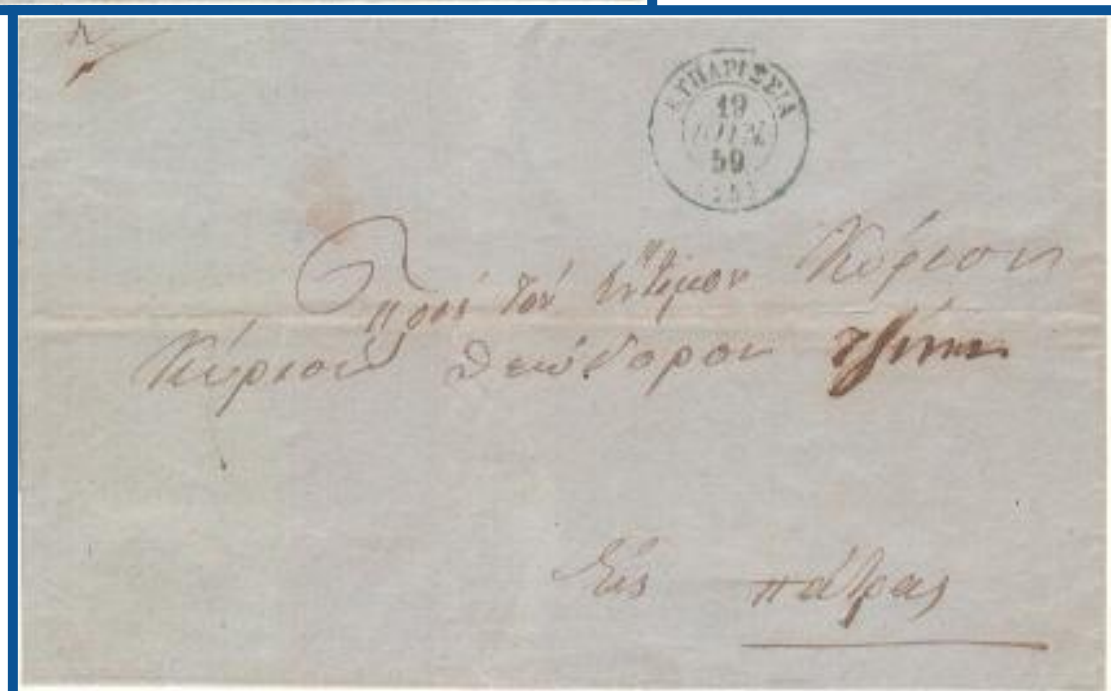 ΚΥΠΑΡΙΣΣΙΑ
19
59
Πρός τόν ἔντιμον Κύριον
Κύριον Θεόδορον
Εἰς πάτρας